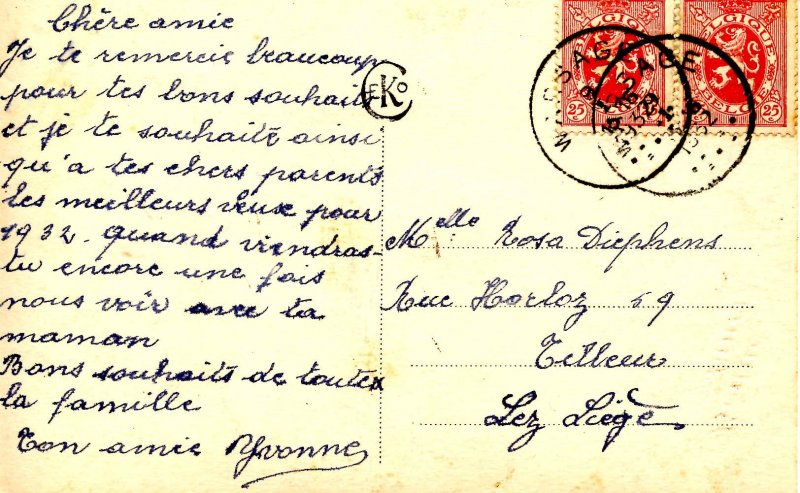 Chère amie
Je te remercie beaucoup
pour tes bons souhaits
et je te souhaite ainsi
qu'a tes chers parents
les meilleurs veux pour
1932. quand viendras-
tu encore une fois
nous voir avec ta
maman
Bons souhaits de toutex
la famille
Ton amie Yvonne
EKO
BELGIQUE
BELGIE
25
BELGIQUE
BELGIE
25
1932
Melle Rosa Diephens
Rue Horloz 59
Tilleur
Lez Liège